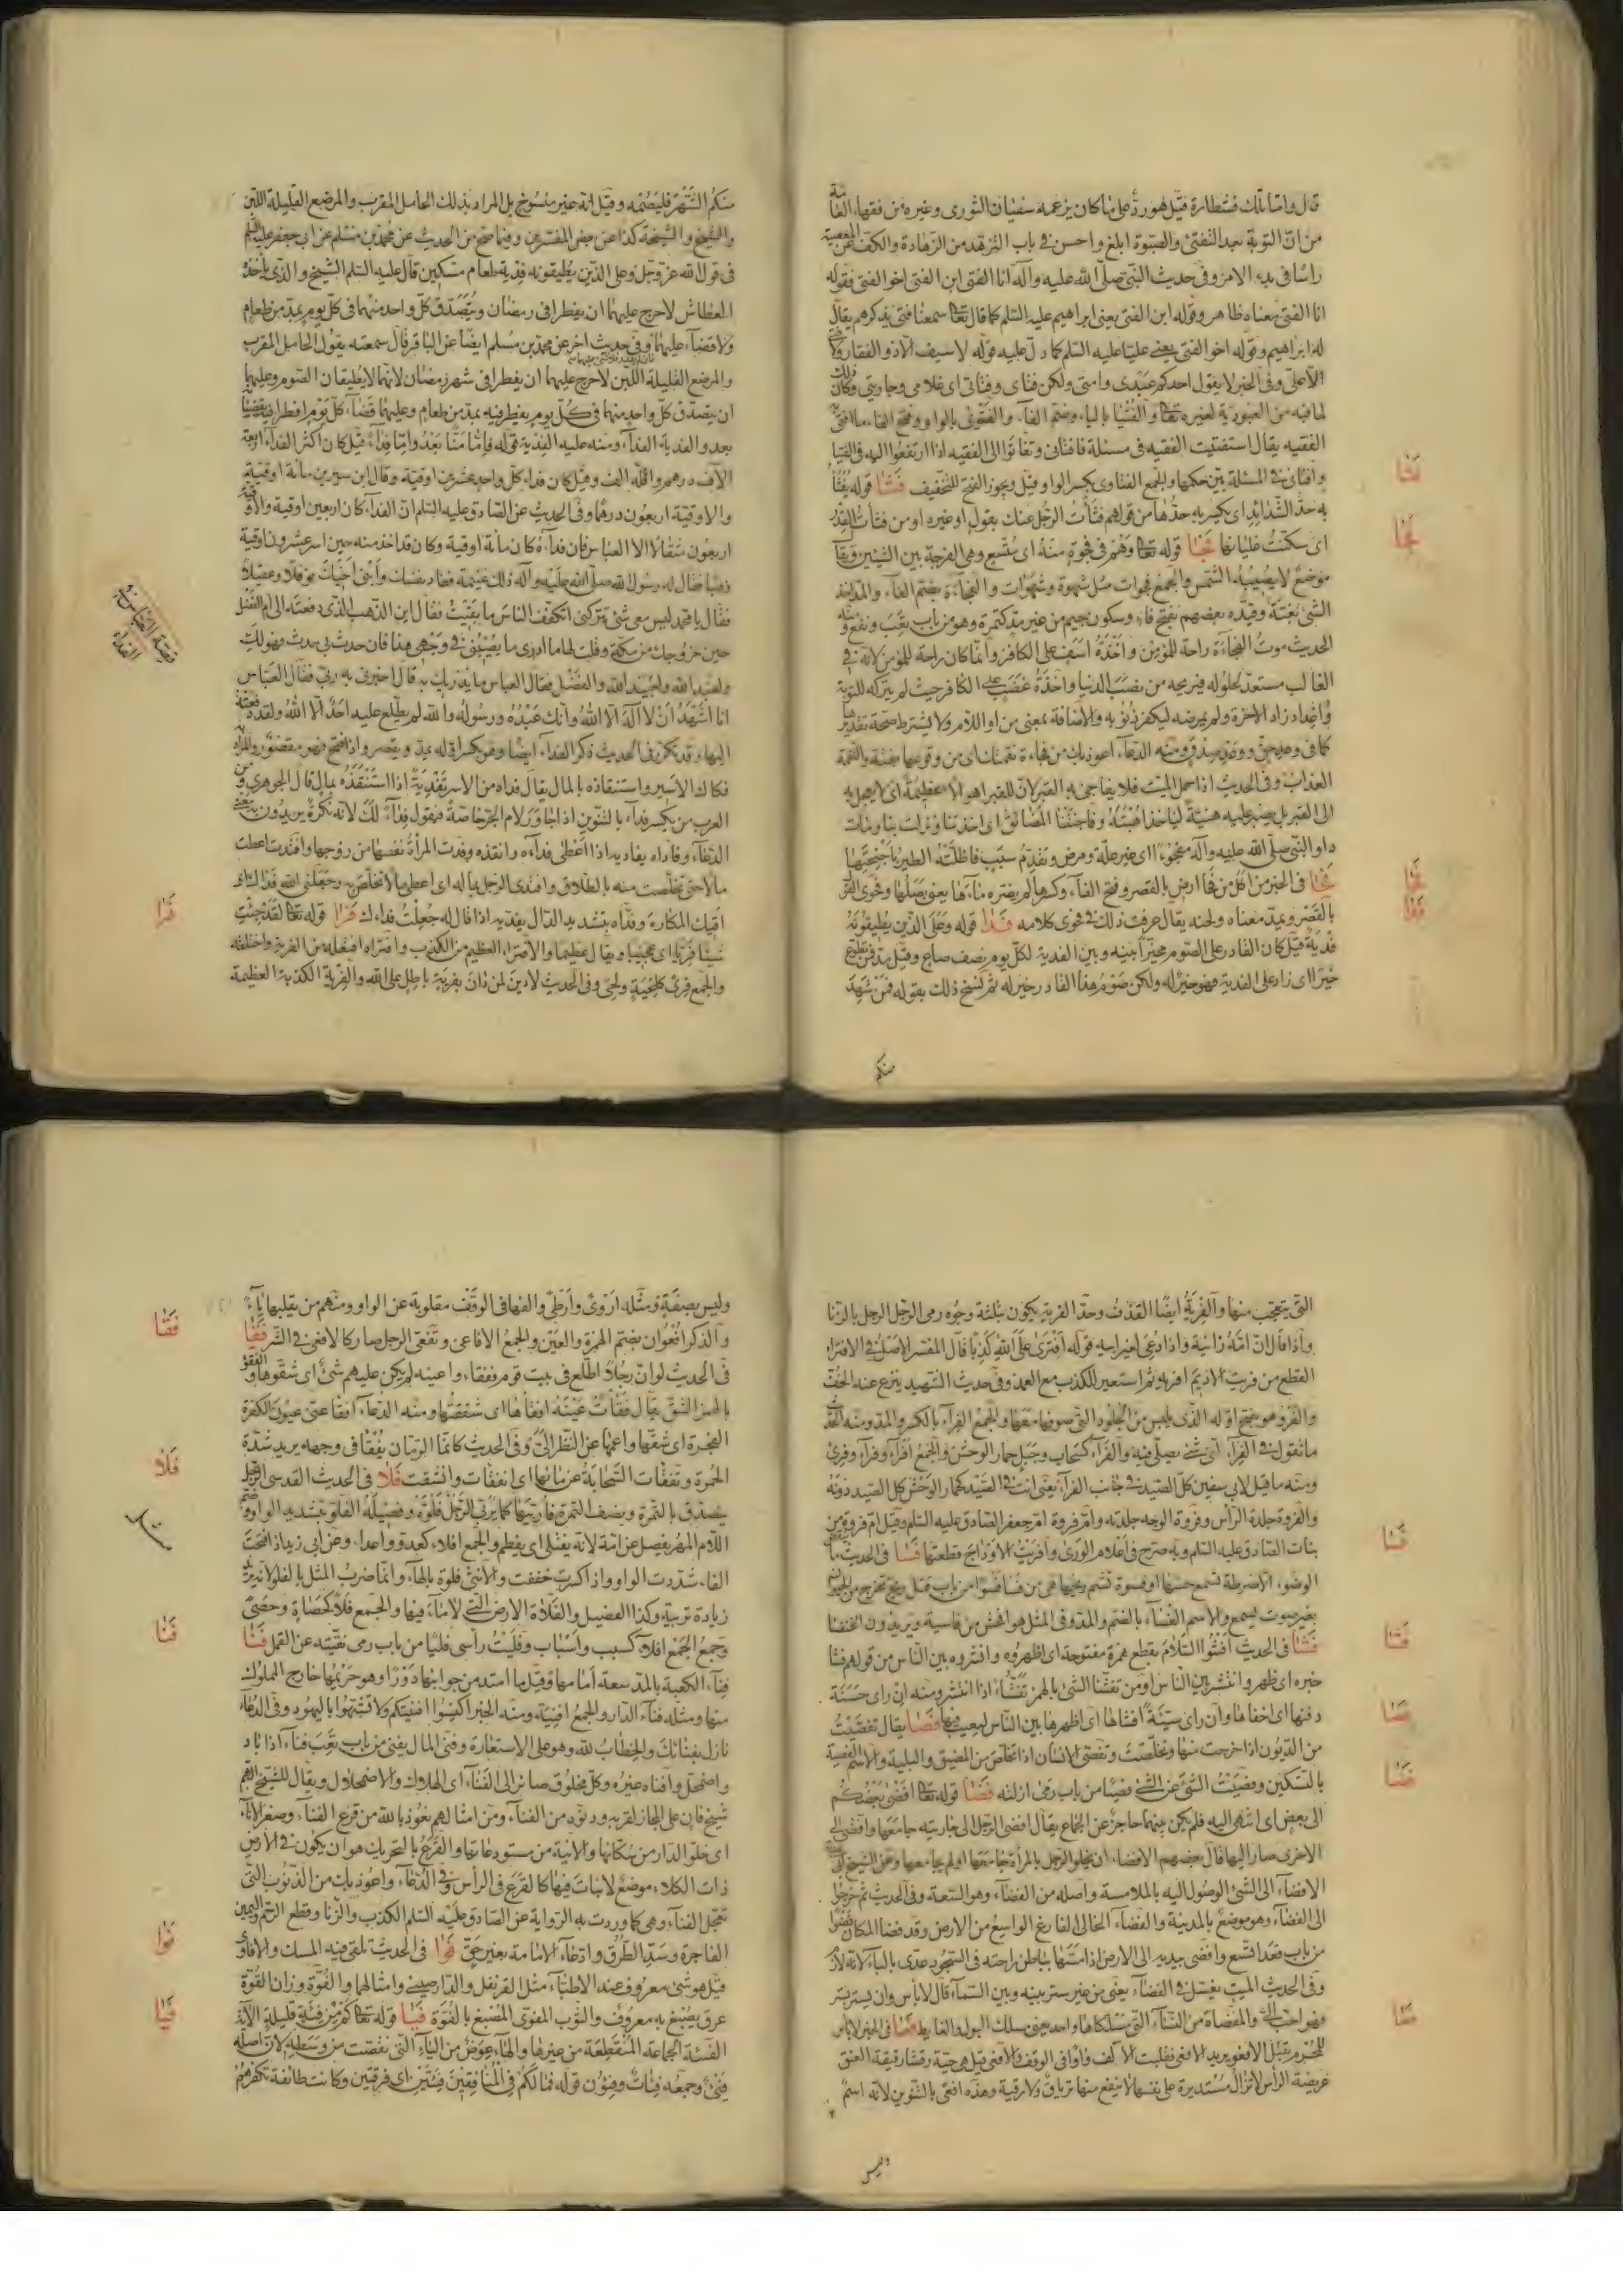 قال وامّا تلك فشطارة قيل هو ردّ على ما كان يزعمه سفيان الثورى وغيره من فقهاء العامة
من انّ التوبة بعد التفتى والصبوة ابلغ واحسن فى باب التزهد من الزهادة والكف عن المعصية
راسا فى بدء الامر وفى حديث النبى صلى الله عليه وآله انا الفتى ابن الفتى اخو الفتى فقوله
انا الفتى معناه ظاهر وقوله ابن الفتى يعنى ابراهيم عليه السلم كما قال تعالى سمعنا فتى يذكرهم يقال
له ابراهيم وقوله اخو الفتى يعنى عليا عليه السلم كما دل عليه قوله لا سيف الا ذو الفقار ولا فتى
الا على وفى الخبر لا يقول احدكم عبدى وامتى ولكن فتاى وفتاتى اى غلامى وجاريتى وكان ذلك
لما فيه من العبودية لغيره تعالى والفتيا بالياء وضم الفاء والفتوى بالواو وفتح الفاء ما افتى به
الفقيه يقال استفتيت الفقيه فى مسئلة فافتانى وتفاتوا الى الفقيه اذا ارتفعوا اليه فى الفتيا
وافتانى فى المسئلة بين حكمها والجمع الفتاوى بكسر الواو وقيل ويجوز الفتح للتخفيف فثا قوله يفثا
به حد الشدائد اى يكسر به حدها من قولهم فثأت الرجل عنك بقول او غيره او من فثأت القدر
اى سكنت غليانها فجا قوله تعالى وهم فى فجوة منه اى متسع وهى الفرجة بين الشيئين ويقال
موضع لا يصيبه الشمس والجمع فجوات مثل شهوة وشهوات والفجاءة بضم الفاء والمد
الشى بغتة وقيده بعضهم بفتح فاء وسكون جيم من غير مد كتمرة وهو من باب تعب ونفع ومنه
الحديث موت الفجاءة راحة للمؤمن واخذة اسف على الكافر وانما كان راحة للمؤمن لانه فى
الغالب مستعد لحلوله فيريحه من نصب الدنيا واخذة غضب على الكافر حيث لم يتركه للتوبة
واعداد زاد الاخرة ولم يمرضه ليكفر ذنوبه والاضافة بمعنى من او اللام ولا يشترط صحة تقديرها
ومنه الدعاء اعوذ بك من فجاءة نقمتك اى من وقوعها بغتة والنقمة
العذاب وفى الحديث اذا حمل الميت فلا يفاجى به القبر لان للقبر اهوالا عظيمة اى لا يعجل به
الى القبر بل يصبر عليه هنيئة لياخذ اهبته وفاجئتنا المضائق اى اخذتنا ونزلت بنا ومات
داود النبى صلى الله عليه وآله مفجوءا اى غير علة ومرض وتقدم سبب فاظلته الطير باجنحتها
فحا فى الخبر من اكل من فحا ارض بالقصر وفتح الفاء وكسرها لم يضره ماءها يعنى بصلها وفحوى القول
بالقصر ويمد معناه ولحنه يقال عرفت ذلك فى فحوى كلامه فدا قوله وعلى الذين يطيقونه
فدية قيل كان القادر على الصوم مخيرا بينه وبين الفدية لكل يوم نصف صاع وقيل مد فمن تطوع
خيرا اى زاد على الفدية فهو خير له ولكن صوم هذا القادر خير له ثم نسخ ذلك بقوله فمن شهد
منكم
فثا
فجا
فحا
فدا
منكم الشهر فليصمه وقيل انه غير منسوخ بل المراد بذلك الحامل المقرب والمرضع القليلة اللبن
والشيخ والشيخة كذا عن بعض المفسرين وفيما صح من الحديث عن محمد بن مسلم عن ابى جعفر عليه السلم
فى قول الله عز وجل وعلى الذين يطيقونه فدية طعام مسكين قال عليه السلم الشيخ والذى ياخذه
العطاش لا حرج عليهما ان يفطرا فى رمضان ويتصدق كل واحد منهما فى كل يوم بمد من طعام
ولا قضاء عليهما وفى حديث اخر عن محمد بن مسلم ايضا عن الباقر قال سمعته يقول الحامل المقرب
والمرضع القليلة اللبن لا حرج عليهما ان يفطرا فى شهر رمضان لانهما لا يطيقان الصوم وعليهما
ان يتصدق كل واحد منهما فى كل يوم يفطر فيه بمد من طعام وعليهما قضاء كل يوم افطرا فيه
بعد والفدية الفداء ومنه عليه الفدية قوله فاما منا بعد واما فداء قيل كان اكثر الفداء اربعة
الاف درهم واقله الف وقيل كان فداء كل واحد عشرين اوقية وقال ابن سيرين مائة اوقية
والاوقية اربعون درهما وفى الحديث عن الصادق عليه السلم ان الفداء كان اربعين اوقية والاوقية
اربعون مثقالا الا العباس فان فداءه كان مائة اوقية وكان قد اخذ منه حين اسر عشرون اوقية
ذهبا فقال له رسول الله صلى الله عليه وآله ذلك غنيمة ففاد نفسك وابنى اخيك نوفلا وعقيلا
فقال يا محمد ليس معى شئ تتركنى اتكفف الناس ما بقيت فقال اين الذهب الذى دفعته الى ام الفضل
حين خروجك من مكة وقلت لها ما ادرى ما يصيبنى فى وجهى هذا فان حدث بى حدث فهو لك
ولعبد الله ولعبيد الله والفضل فقال العباس ما يدريك به قال اخبرنى به ربى فقال العباس
انا اشهد ان لا اله الا الله وانك عبده ورسوله والله لم يطلع عليه احد الا الله ولقد دفعته
اليها وقد تكرر فى الحديث ذكر الفداء ايضا وهو بكسر اوله يمد ويقصر واذا فتح فهو مقصور والمراد به
فكاك الاسير واستنقاذه بالمال يقال فداه من الاسر تفدية اذا استنقذه بمال قال الجوهرى ومن
العرب من يكسر فداء بالتنوين اذا جاور لام الجر خاصة فيقول فداء لك لانه نكرة يريدون به معنى
الدعاء وفاداه يفاديه اذا اعطى فداءه وانقذه وفدت المرأة نفسها من زوجها وافتدت اعطت
مالا حتى تخلصت منه بالطلاق وافتدى الرجل بماله اى اعطى مالا تخلص به وجعلنى الله فداك اى
اقيك المكاره وفداه بتشديد الدال يفديه اذا قال له جعلت فداءك فرا قوله تعالى لقد جئت
شيئا فريا اى عجيبا ويقال عظيما والافتراء العظيم من الكذب وافتراه افتعله من الفرية واختلقه
والجمع فرى كلحية ولحى وفى الحديث لا دين لمن دان بفرية باطل على الله والفرية الكذبة العظيمة
فرا
التى يتعجب منها والفرية ايضا القذف وحد الفرية يكون بثلثة وجوه رمى الرجل الرجل بالزنا
واذا قال ان امه زانية واذا دعى لغير ابيه قوله افترى على الله كذبا قال المفسر الاصل فى الافتراء
القطع من فريت الاديم افريه ثم استعير للكذب مع العمد وفى حديث الشهيد ينزع عنه الخف
والفرو هو بفتح اوله الذى يلبس من الجلود التى صوفها معها والجمع الفراء بالكسر والمد ومنه الحديث
ما تقول فى الفراء اى شئ يصلى فيه والفراء كسحاب وجبل حمار الوحش والجمع افراء وفراء وفرى
ومنه ما قيل لابى سفين كل الصيد فى جانب الفراء يعنى انت فى الصيد كحمار الوحش كل الصيد دونه
والفروة جلدة الراس وفروة الوجه جلدته وام فروة ام جعفر الصادق عليه السلم وقيل ام فروة من
بنات الصادق عليه السلم وبه صرح فى اعلام الورى وافريت الاوداج قطعتها فسا فى الحديث
الوضوء الا ضرطة تسمع حسها او فسوة تشم ريحها هى من فسا فسوا من باب قتل ريح تخرج من الحيوان
بغير صوت يسمع والاسم الفساء بالضم والمد وفى المثل هو افحش من فاسية ويريدون الخنفسا
فشا فى الحديث افشوا السلام بقطع همزة مفتوحة اى اظهروه وانشروه بين الناس من قولهم فشا
خبره اى ظهر وانتشر بين الناس او من تفشأ الشئ بالهمز تفشأ اذا انتشر ومنه ان راى حسنة
دفنها اى اخفاها وان راى سيئة افشاها اى اظهرها بين الناس ليعيب فيها فصا يقال تفصيت
من الديون اذا خرجت منها وتخلصت وتفصى الانسان اذا تخلص من المضيق والبلية والاسم الفصية
بالتسكين وفصيت الشئ عن الشئ فصيا من باب رمى ازلته فضا قوله تعالى افضى بعضكم
الى بعض اى انتهى اليه فلم يكن بينهما حاجز عن الجماع يقال افضى الرجل الى جاريته جامعها وافضى الى
الاخرى صار اليها قال بعضهم الافضاء ان يخلو الرجل بالمراة جامعها او لم يجامعها وعن الشيخ
الافضاء الى الشئ الوصول اليه بالملامسة واصله من الفضاء وهو السعة وفى الحديث ثم خرجوا
الى الفضاء وهو موضع بالمدينة والفضاء الخالى الفارغ الواسع من الارض وقد فضا المكان فضوا
من باب قعد اتسع وافضى بيديه الى الارض اذا مسها بباطن راحته فى السجود عدى بالباء لانه لازم
وفى الحديث الميت يغسل فى الفضاء يعنى من غير ستر بينه وبين السماء قال لا باس وان يستر بستر
فهو احب الى والمفضاة من النساء التى مسلكاها واحد يعنى مسلك البول والغائط فعا فى الخبر لا باس
للمحرم بقتل الافعو يريد الافعى فقلبت الالف واوا فى الوقف والافعى قيل هى حية رقشاء دقيقة العنق
عريضة الراس لا تزال مستديرة على نفسها لا ينفع منها ترياق ولا رقية وهذه افعى بالتنوين لانه اسم
وليس
فسا
فشا
فصا
فضا
فعا
وليس بصفة ومثله اروى وارطى والفها فى الوقف مقلوبة عن الواو ومنهم من يقلبها ياء
والذكر افعوان بضم الهمزة والعين والجمع الافاعى وتفعى الرجل صار كالافعى فى الشر فقا
فى الحديث لو ان رجلا اطلع فى بيت قوم ففقاءوا عينه لم يكن عليهم شئ اى شقوها والفقؤ
بالهمز الشق يقال فقأت عينه افقاها اى شققتها ومنه الدعاء افقا عنى عيون الكفرة
الفجرة اى شقها واعمها عن النظر الى وفى الحديث كانما الرمان يفقأ فى وجهه يريد شدة
الحمرة وتفقات السحابة عن مائها اى تفقات وانشقت فلا فى الحديث القدسى الرجل
يتصدق بالتمرة وبنصف التمرة فاربيها كما يربى الرجل فلوه وفصيله الفلو بتشديد الواو وضم
اللام المهر يفصل عن امه لانه يفتلى اى يفطم والجمع افلاء كعدو واعداء وعن ابى زيد اذا فتحت
الفاء شددت الواو واذا كسرت خففت والانثى فلوة بالهاء وانما ضرب المثل بالفلو لانه يريد
زيادة تربية وكذا الفصيل والفلاة الارض التى لا ماء فيها والجمع فلا كحصاة وحصى
وجمع الجمع افلاء كسبب واسباب وفليت راسى فليا من باب رمى نقيته عن القمل فنا
فناء الكعبة بالمد سعة امامها وقيل ما امتد من جوانبها دورا وهو حريمها خارج المملوك
منها ومثله فناء الدار والجمع افنية ومنه الخبر اكنسوا افنيتكم ولا تشبهوا باليهود وفى الدعاء
نازل بفنائك والخطاب لله وهو على الاستعارة وفنى المال يفنى من باب تعب فناء اذا باد
واضمحل وافناه غيره وكل مخلوق صائر الى الفناء اى الهلاك والاضمحلال ويقال للشيخ الهم
شيخ فان على المجاز لقربه ودنوه من الفناء ومن امثالهم نعوذ بالله من قرع الفناء وصفر الاناء
اى خلو الدار من سكانها والانية من مستودعاتها والقرع بالتحريك هو ان يكون فى الارض
ذات الكلاء موضع لا نبات فيها كالقرع فى الراس وفى الدعاء واعوذ بك من الذنوب التى
تعجل الفناء وهى كما وردت به الرواية عن الصادق عليه السلم الكذب والزنا وقطع الرحم واليمين
الفاجرة وسد الطرق وادعاء الامامة بغير حق فوا فى الحديث تلقى فيه المسك والافاوى
قيل هو شئ معروف عند الاطباء مثل القرنفل والدارصينى وامثالهما والفوة وزان القوة
عرق يصبغ به معروف والثوب المفوى المصبغ بالفوة فيا قوله تعالى كم من فئة قليلة الآية
الفئة الجماعة المنقطعة من غيرها والهاء عوض من الياء التى نقصت من وسطه لان اصله
فئ وجمعه فئات وفئون قوله فما لكم فى المنافقين فئتين اى فرقتين وكانت طائفة تكفرهم
فقا
فلا
فنا
فوا
فيا